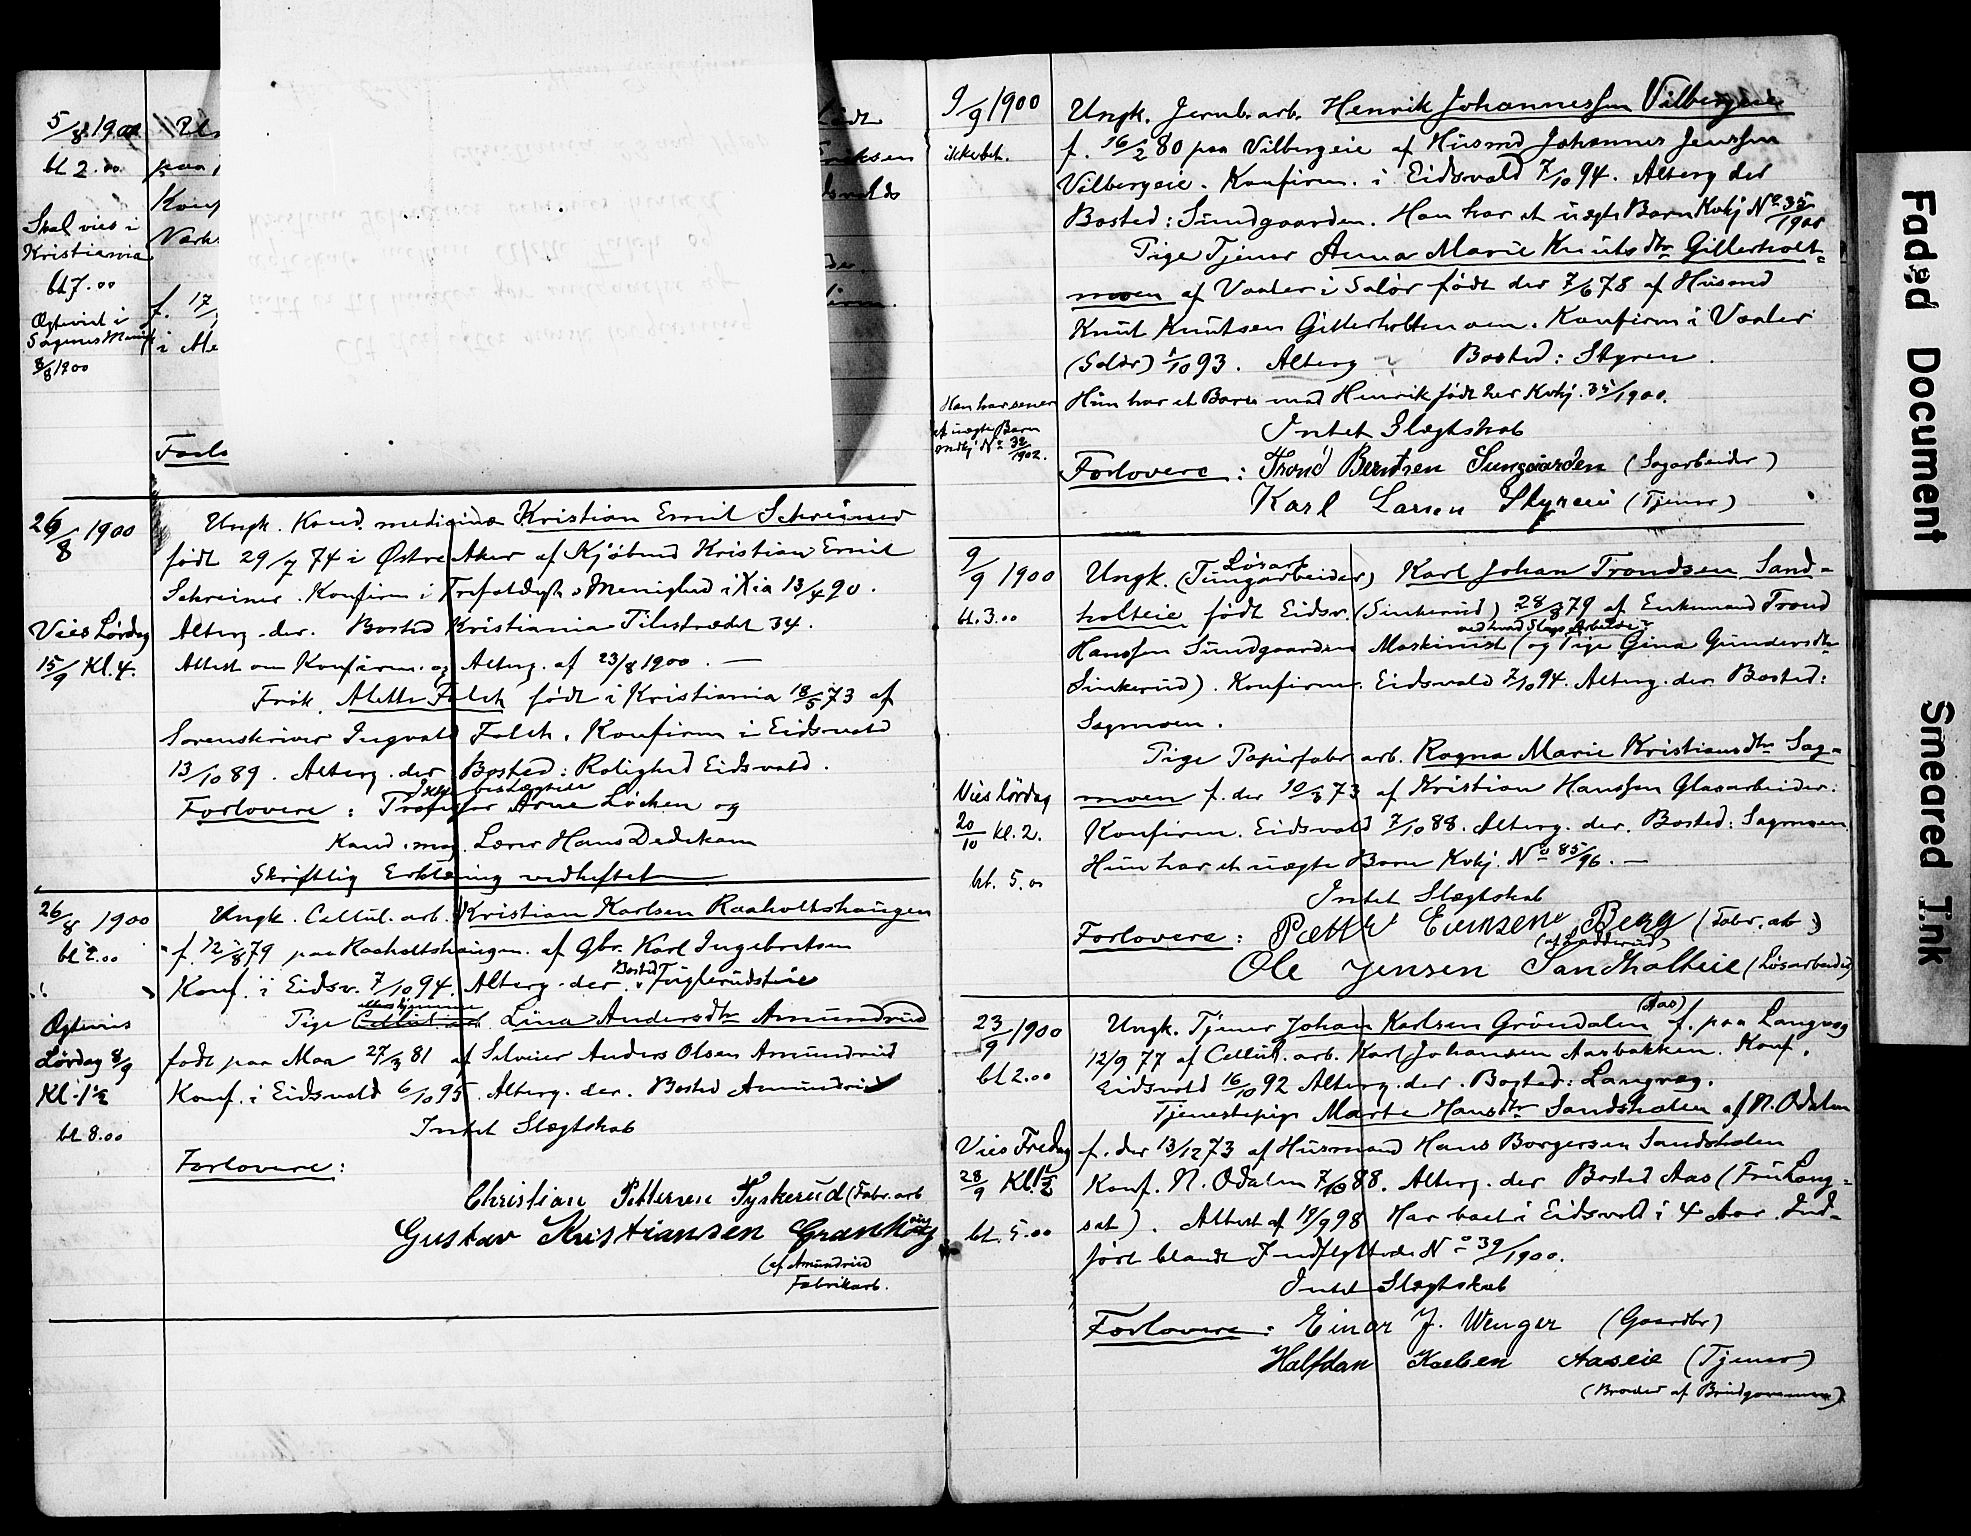 5/8 1900
bt 2.00
Skal vies i
Kristiania
bt 7.00
Ægteviet i
Sagenes Menigh
8/8 1900
paa
Konf
Værk
f. 17/
i
født
Eriksen
dsvolds
Forlo
26/8 1900
Vies Lørdag
15/9 Kl. 4.
Ungk. Kand. medicinæ Kristian Emil Schreiner
født 29/7 74 i Østre Aker af Kjøbmd Kristian Emil
Schreiner. Konfirm i Trefoldigh.s Menighed i Kia 13/4 90.
Alterg. der. Bosted Kristiania Tilestrædet 34.
Attest om Konfirm. og Alterg. af 23/8 1900. —
Frøk. Alette Falch født i Kristiania 18/5 73 af
Sorenskriver Ingvald Falch. Konfirm i Eidsvold
13/10 89. Alterg. der Bosted: Rolighed Eidsvold.
Ikke beslægtede
Forlovere: Professor Arne Löchen og
Kand. mag. Lærer Hans Dedekam
Skriftlig Erklæring vedheftet
26/8 1900
bt 2.00
Ægtevies
Lørdag 8/9
Kl. 1½
bt 8.00
Ungk. Cellul. arb. Kristian Karlsen Raaholtshaugen
f. 12/8 79 paa Raaholtshaugen af Gbr. Karl Ingebretsen
Konf. i Eidsv. 7/10 94. Alterg. der. Bosted Fuglerudsteie
Pige Cellul. arb hjemme Lina Andersdtr Amundrud
født paa Maa 27/3 81 af Selveier Anders Olsen Amundrud
Konf. i Eidsvold 6/10 95. Alterg. der. Bosted Amundrud
Intet Slægtskab
Forlovere:
Christian Pettersen Tyskerud (Fabr. arb
Gustav Kristiansen Granhaug
(af Amundrud
Fabrikarb.
9/9 1900
ikke bet.
Han har senere
et uægte Barn
Nº 32/1902.
Ungk. Jernb. arb. Henrik Johannessen Vilbergeie
f. 16/2 80 paa Vilbergeie af Husmd Johannes Jenssen
Vilbergeie. Konfirm. i Eidsvold 7/10 94. Alterg der
Bosted: Sundgaarden. Han har et uægte Barn Kvkj Nº 35/1900
Pige Tjener Anna Marie Knutsdtr Gitterholt-
moen af Vaaler i Solør født der 7/6 78 af Husmd
Knut Knutsen Gitterholtmoen. Konfirm i Vaaler
(Solør) 1/10 93. Alterg Bosted: Styren.
Hun har et Barn med Henrik født her Kvkj. 35/1900.
Intet Slægtskab
Forlovere: Trond Berntsen Sungaarden (Sagarbeider)
Karl Larsen Styreie (Tjener)
9/9 1900
bt. 3.00
Vies lördag
20/10 kl. 2.
bt. 5.00
Ungk. (Tungarbeider) Løsarb Karl Johan Trondsen Sand-
holteie født Eidsv. (Sinkerud) 28/8 79 af Enkemand Trond
ved hvad Slags Arbeide
Hanssen Sundgaarden Maskinist (og Pige Gina Gundersdtr
Sinkerud). Konfirm. Eidsvold 7/10 94. Alterg. der. Bosted:
Sagmoen.
Pige Papirfabr arb. Ragna Marie Kristiansdtr Sag-
moen f. der 10/3 73 af Kristian Hanssen Glasarbeider.
Konfirm. Eidsvold 7/10 88. Alterg. der. Bosted: Sagmoen
Hun har et uægte Barn Kvkj. Nº 85/96. —
Intet Slægtskab
Forlovere: Petter Evensen Berg (Fabr. arb)
(af Ladderud)
Ole Jensen Sandholteie (Løsarbeider)
23/9 1900
bt 2.00
Vies Fredag
28/9 Kl. 1½
bt. 5.00
Ungk. Tjener Johan Karlsen Gröndalen (Aas) f. paa Langvag
12/9 77 af Cellul. arb. Karl Johansen Aasbakken. Konf.
Eidsvold 16/10 92 Alterg. der. Bosted: Langvag.
Tjenestepige Marte Hansdtr Sandsholen af N. Odalen
f. der 13/12 73 af Husmand Hans Borgersen Sandsholen
Konf. N. Odalen 7/10 88. Alterg. der Bosted Aas (Fru Lang-
set). Attest af 19/9 98 Har boet i Eidsvold i 4 Aar. Ind-
ført blandt Indflyttede Nº 39/1900.
Intet Slægtskab
Forlovere: Einar J. Wenger (Gaardbr)
Halfdan Karlsen Aaseie (Tjener)
(Broder af Brudgommen)
Faded Document
Smeared Ink